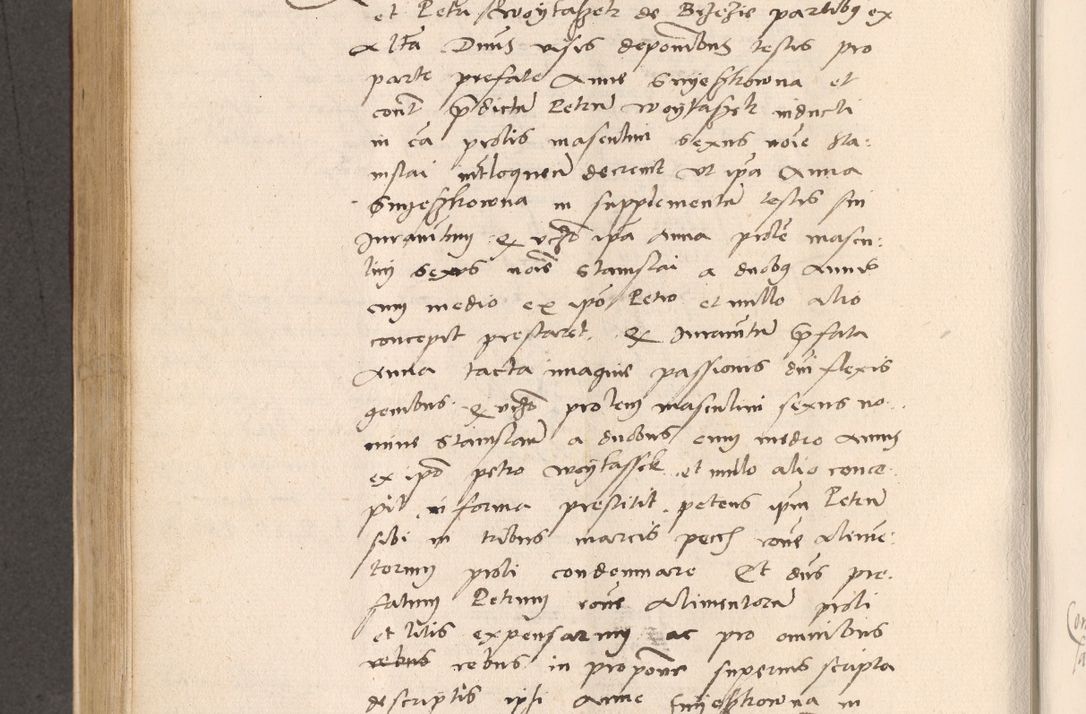 et Petri Woytasszek de Bzezie partibus ex
Alta Dnus visis deponibus testis pro
parte prefate Anne Smyeszkowna et
cont pdictu Petru Woytasszek inducti
in ca prolis masculini sexus noie Sta:
nislai intloquen decrevit ut ipa Anna
Smyeszkowna in supplementu testis sui
Iuramentum q ipa Anna prole mascu:
lini sexus nois Stanislai a duobus Annis
cum medio ex ipo Petro et nullo alio
concepit prestaret. q Iuramentu pfata
Anna tacta imagine passionis dni flexis
genibus q prolem masculini sexus no
mine Stanislau a duobus cum medio Annis
ex ipo petro Woytassek et nullo alio conce:
pit in forma prestitit petens ipm Petru
sibi in tribus marcis pecch rone Alime:
torum proli condemnare Et dns pre:
fatum Petrum rone Alimentoru proli
et litis expensarum ac pro omnibus
rebus rebus in propone superius scripta
descriptis ipsi Anne Smyeszkowna in